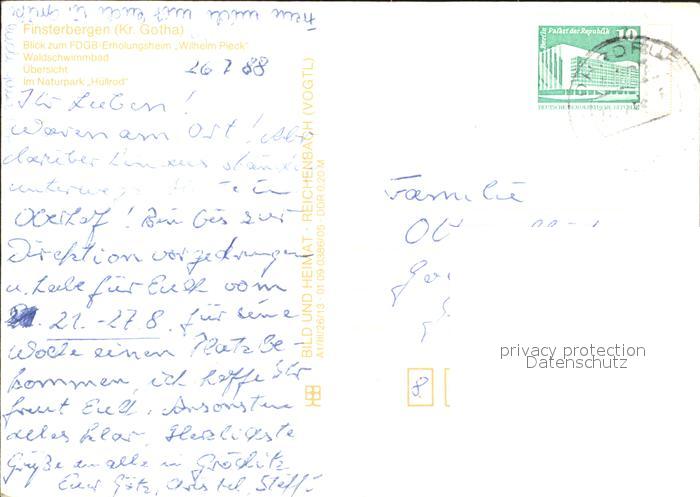 Finsterbergen (Kr. Gotha)
Blick zum FDGB-Erholungsheim „Wilhelm Pieck"
Waldschwimmbad
Übersicht
Im Naturpark „Hüllrod"
26 7 88
Ihr Lieben!
Waren am Ort! Ab
darüber hinaus ständ
unterwegs in
Oberhof! Bin bis zur
Direktion vorgedrungen
u. habe für Euch vom
21.-27.8. für eine
Woche einen Platz be-
kommen, ich hoffe Ihr
freut Euch. Ansonsten
alles klar. Herzlichste
Grüße an alle in Gröditz
Eure Götz, Christel, Steffi
BILD UND HEIMAT · REICHENBACH (VOGTL)
A1/III/26/13 · 01 09 0386/05 · DDR 0,20 M
Berlin Palast der Republik
10
Familie
8
privacy protection
Datenschutz